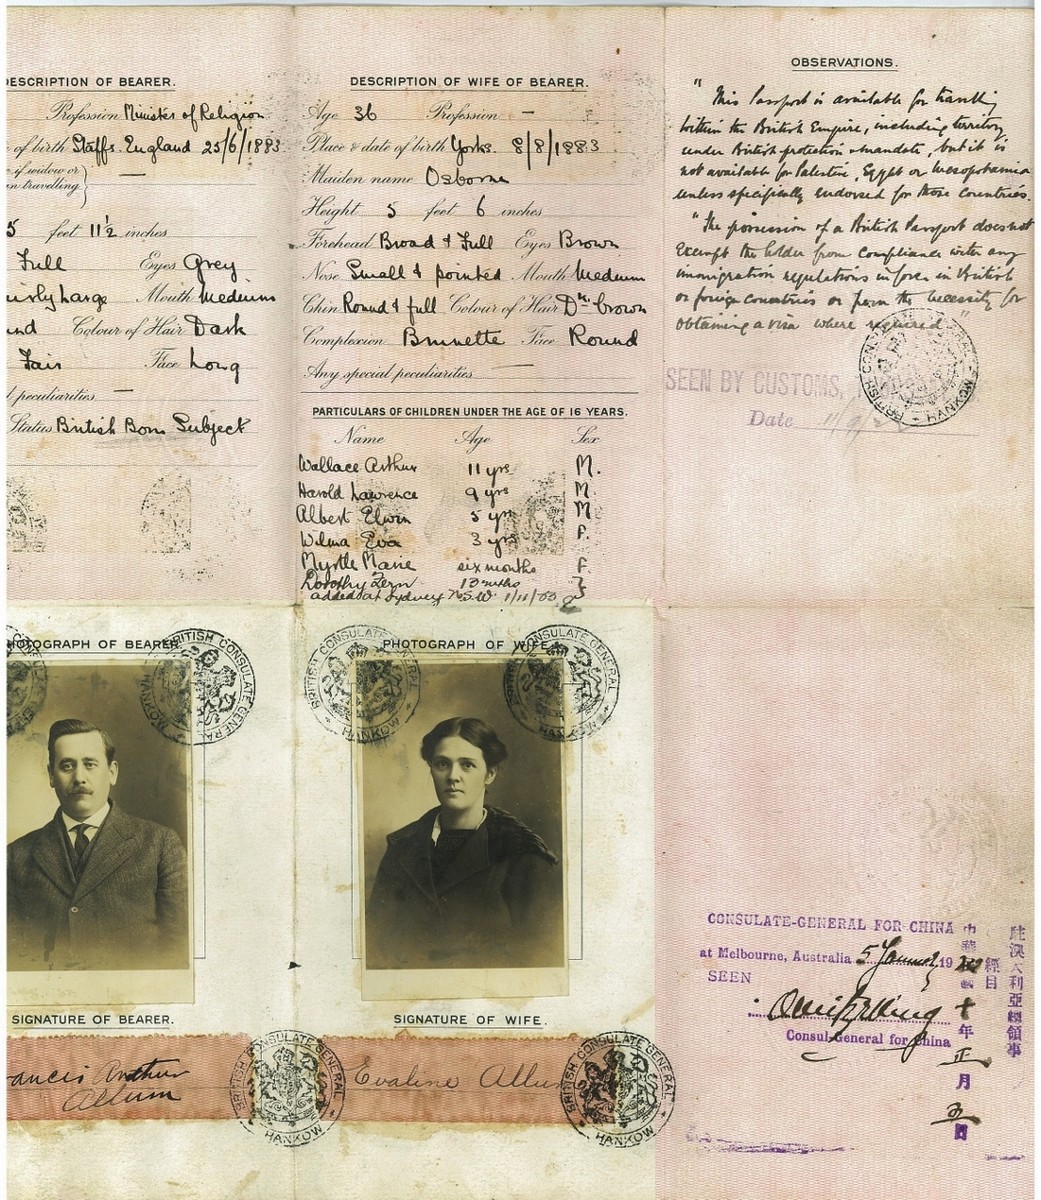 DESCRIPTION OF BEARER.
Profession Minister of Religion
of birth Staffs. England 25/6/1883
if widow or
travelling
5 feet 11½ inches
Full Eyes Grey
Large Mouth Medium
Colour of Hair Dark
Fair Face Long
peculiarities —
Status British Born Subject
DESCRIPTION OF WIFE OF BEARER.
Age 36 Profession —
Place & date of birth Yorks. 8/8/1883
Maiden name Osborne
Height 5 feet 6 inches
Forehead Broad & Full Eyes Brown
Nose Small & pointed Mouth Medium
Chin Round & full Colour of Hair Dk brown
Complexion Brunette Face Round
Any special peculiarities —
PARTICULARS OF CHILDREN UNDER THE AGE OF 16 YEARS.
Name Age Sex
Wallace Arthur 11 yrs M.
Harold Lawrence 9 yrs M
Albert Elwin 5 yrs M
Wilma Eva 3 yrs F.
Myrtle Marie six months F.
Dorothy 13 mths F
added at Sydney N.S.W. 1/11/
OBSERVATIONS.
"This Passport is available for travelling
within the British Empire, including territory
under British protection & mandate, but it is
not available for Palestine, Egypt or Mesopotamia
unless specifically endorsed for those countries.
"The possession of a British Passport does not
exempt the holder from compliance with any
immigration regulations in force in British
or foreign countries or from the necessity for
obtaining a visa where required"
BRITISH CONSULATE GENERAL HANKOW
SEEN BY CUSTOMS,
Date 11/9/
PHOTOGRAPH OF BEARER
BRITISH CONSULATE GENERAL HANKOW
PHOTOGRAPH OF WIFE
BRITISH CONSULATE GENERAL HANKOW
BRITISH CONSULATE GENERAL HANKOW
SIGNATURE OF BEARER.
Francis Arthur
Allum
BRITISH CONSULATE GENERAL HANKOW
SIGNATURE OF WIFE.
Evaline Allum
BRITISH CONSULATE GENERAL HANKOW
CONSULATE-GENERAL FOR CHINA
at Melbourne, Australia 5 January, 19
SEEN
Consul-General for China
駐澳大利亞總領事
經目
中華民國十年正月五日